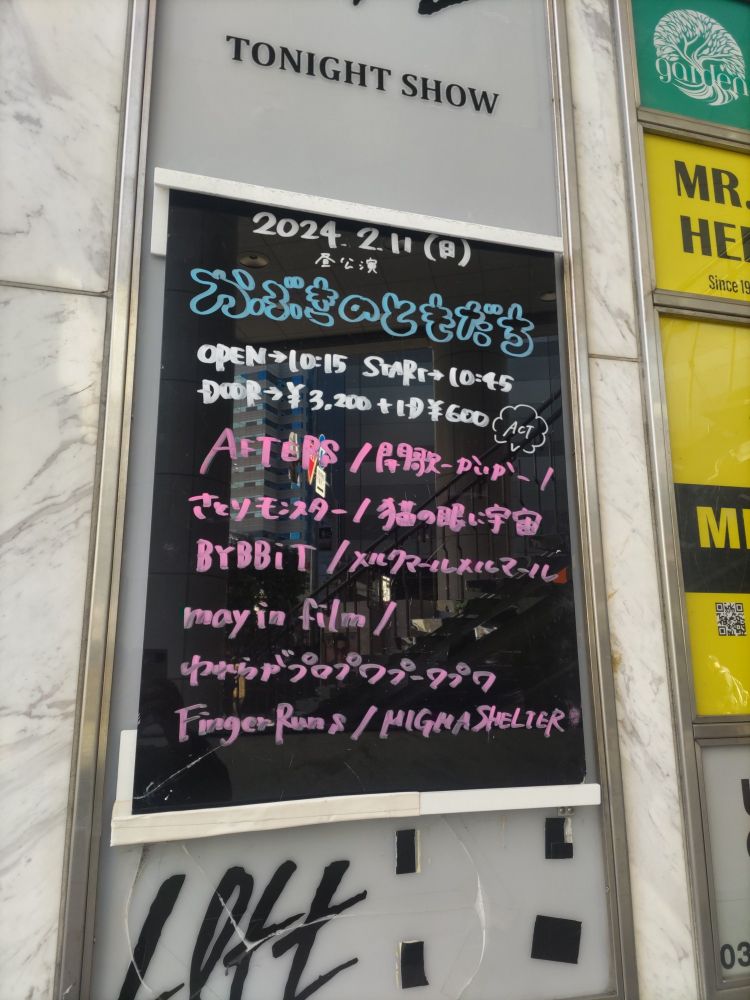 TONIGHT SHOW
2024. 2. 11 (日)
昼公演
かぶきのともだち
OPEN→10:15 START→10:45
DOOR→¥3,200+1D¥600
ACT
AFTERS / 開歌-かいか- /
さとりモンスター / 猫の眼に宇宙
BYBBiT / メルクマールメルマール
mayin film /
ゆからがプロプワプークプワ
Finger Runs / MIGMA SHELTER
LOFT
garden
MR.
HE
Since 19
M
03